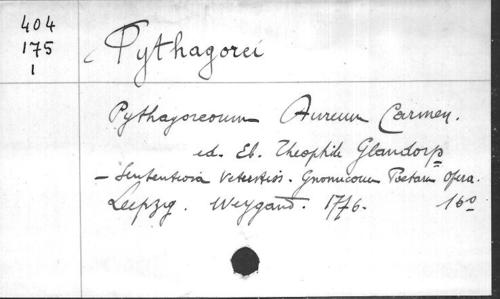 404
175
1
Pythagorei
Pythagoreorum Aureum Carmen.
ed. Eb. Theophil Glandorf
- Sententiosa Vetustiss. Gnomicorum Poetarum Opera.
Leipzig. Weygand. 1776. 16°